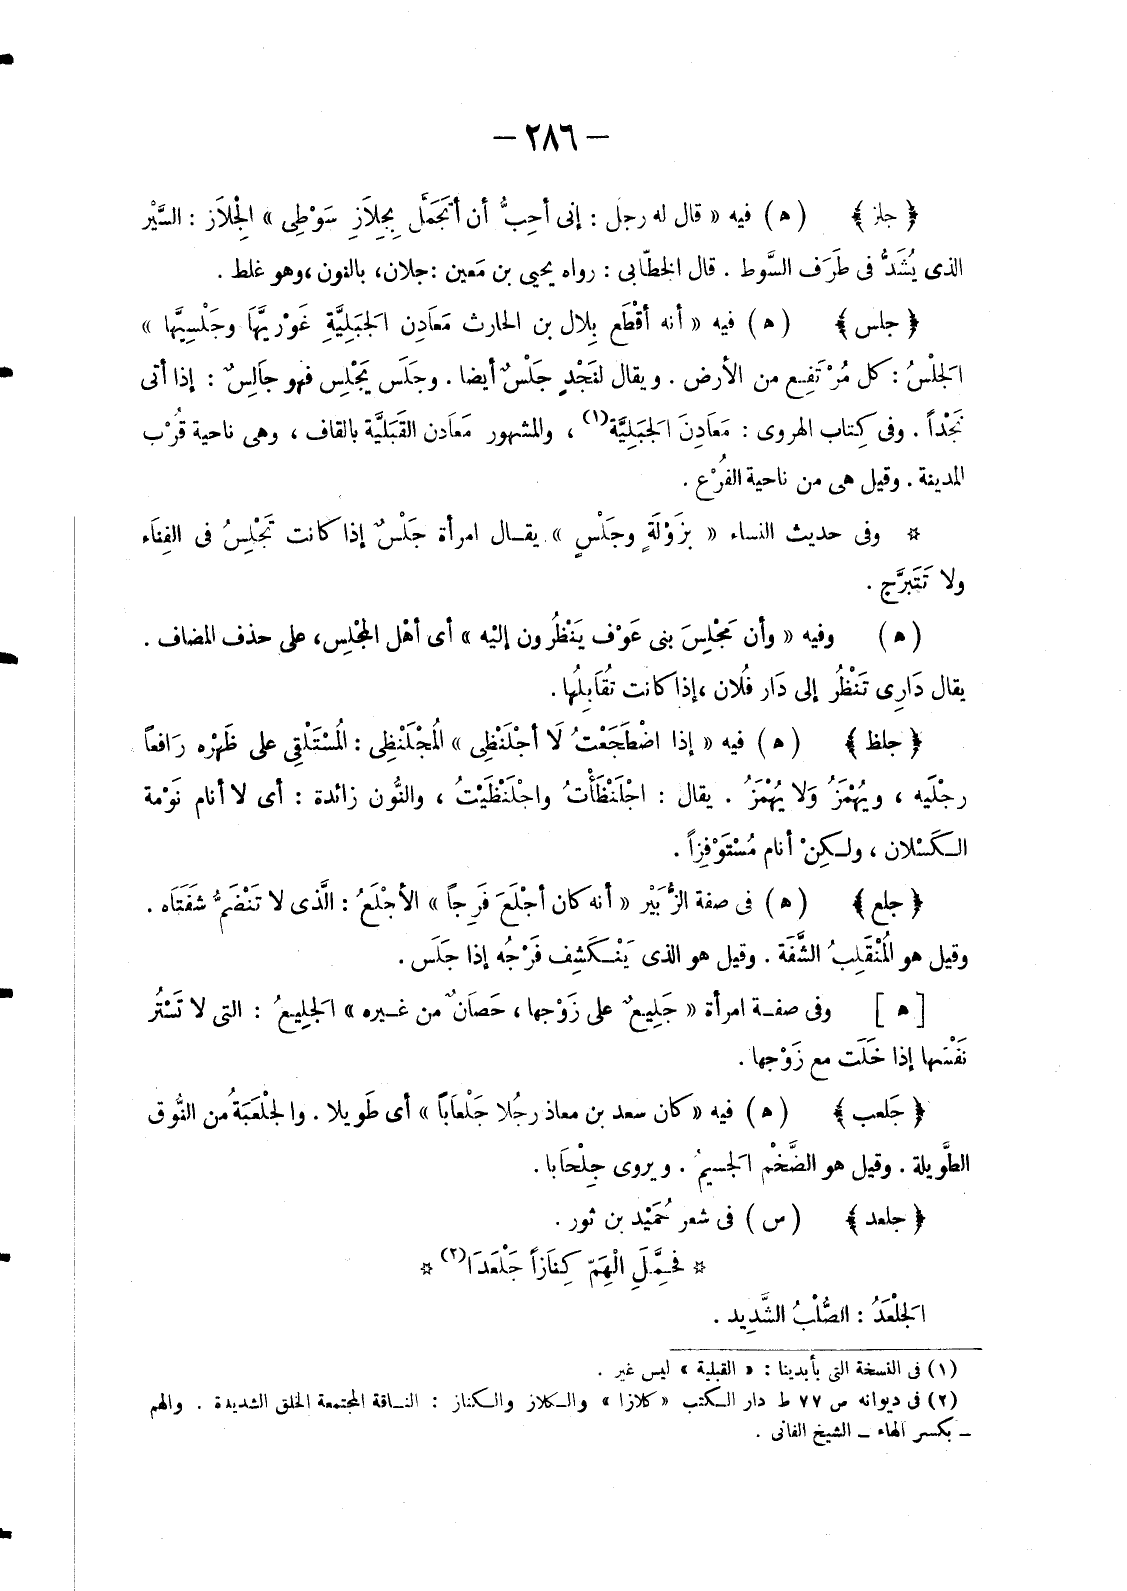 — ٢٨٦ —
﴿ جلز ﴾ (ه) فيه « قال له رجل : إنى أحِبُّ أن أتَجَمَّل بِجِلَازِ سَوْطِى » الْجِلَاز : السَّيْر
الذى يُشَدُّ فى طَرَف السَّوط . قال الخطّابى : رواه يحيى بن مَعين :جلان، بالنون ،وهو غلط .
﴿ جلس ﴾ (ه) فيه « أنه أقْطَع بِلال بن الحارث مَعَادِن الجَبَلِيَّةِ غَوْرِيَّهَا وجَلْسِيَّها »
الجَلْسُ : كل مُرْتَفِع من الأرض . ويقال لنَجْدٍ جَلْسٌ أيضا . وجَلَس يَجْلِس فهو جَالِسٌ : إذا أتى
نَجْداً . وفى كِتاب الهروى : مَعَادِنَ الجَبَلِيَّة(١) ، والمشهور مَعَادن القَبَلِيَّة بالقاف ، وهى ناحية قُرْب
المدينة . وقيل هى من ناحية الفُرْع .
* وفى حديث النساء « بِزَوْلَةٍ وجَلْسٍ » يقـال امرأة جَلْسٌ إذا كانت تَجْلِسُ فى الفِنَاء
ولا تَتَبَرَّج .
(ه) وفيه « وأن مَجْلِسَ بنى عَوْف يَنْظُرون إليْه » أى أهْل المجْلِس، على حذف المضاف .
يقال دَارِى تَنْظُر إلى دَار فُلان ،إذا كانت تُقَابِلُها .
﴿ جلظ ﴾ (ه) فيه « إذا اضْطَجَعْتُ لَا أجْلَنْظِى » الْمُجْلَنْظِى : الْمُسْتَلْقِى على ظَهْرِه رَافعاً
رجْلَيه ، ويُهْمَزُ وَلَا يُهْمَزُ . يقال : اجْلَنْظَأْتُ واجْلَنْظَيْتُ ، والنُّون زائدة : أى لا أنام نَوْمة
الـكَسْلان ، ولـكِنْ أنام مُسْتَوْفِزاً .
﴿ جلع ﴾ (ه) فى صفة الزُّبَيْر « أنه كان أجْلَعَ فَرِجاً » الأجْلَعُ : الَّذى لا تَنْضَمُّ شَفَتَاه .
وقيل هو الْمُنْقَلِبُ الشَّفَة . وقيل هو الذى يَنْـكَشِف فَرْجُه إذا جَلَس .
[ ه ] وفى صفـة امرأة « جَلِيعٌ على زَوْجها ، حَصَانٌ من غـيره » الجَلِيعُ : التى لا تَسْتُر
نَفْسَها إذا خَلَت مع زَوْجها .
﴿ جَلعب ﴾ (ه) فيه «كان سعد بن معاذ رجُلا جَلْعَاباً » أى طَويلا . والجَلْعَبَةُ من النُّوق
الطَّويلة . وقيل هو الضَّخْم الجَسيمُ . ويروى جِلْحَابا .
﴿ جلعد ﴾ (س) فى شعر حُمَيْد بن ثور .
* فَحَمَّلَ الْهِمّ كِنَازاً جَلْعَدَا(٢) *
الجَلْعَدُ : الصُّلْبُ الشَّدِيد .
(١) فى النسخة التى بأيدينا : « القبلية » ليس غير .
(٢) فى ديوانه ص ٧٧ ط دار الـكتب «كلازا » والـكلاز والـكناز : النـاقة المجتمعة الخلق الشديدة . والهم
ــ بكسر الهاء ــ الشيخ الفانى .